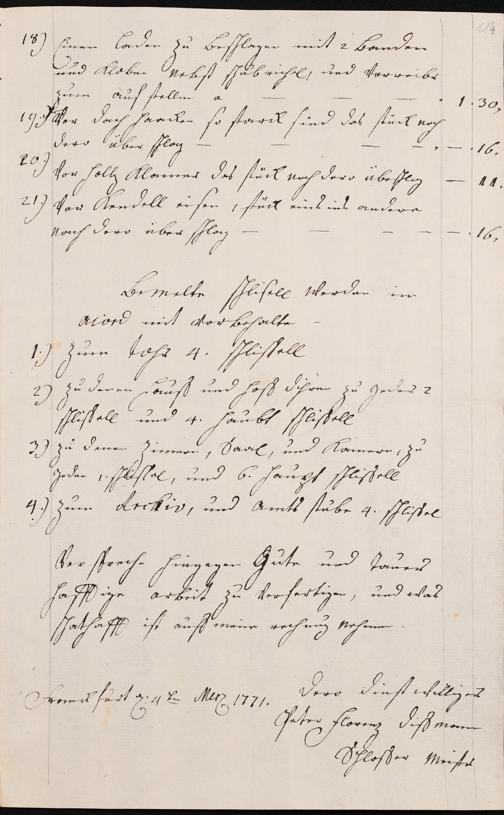 114
18) Einen Laden zu beschlagen mit 2 banden
und Kloben nebst schubrichl, und Vorreibe
zum auf stellen a — — — 1.30,
19) Vor dach haacken so starck sind das stuck nach
dero über schlag — — — — 16.
20) Vor holtz Klamer das stuck nach dero überschlag — 11.
21) Vor Kendell eisen, stuck eins ins andere
nach dero über schlag — — — — 16,
Bemelte schlisell werden in
acord mit vorbehalte
1.) zum Tohr 4. schlissell
2) zu denen Hauss und hoff dihren zu jeder 2
schlissell und 4. haubt schlissell
3) zu denen Zimern, Saal, und Kamern, zu
jeder 1. schlissel, und 6. haupt schlissell
4.) zum Archiv, und amts stube 4. schlissel
Verspreche hingegen Gute und dauer
haffdige arbeit zu verfertigen, und was
schathafft ist auff meine rechnung nehmen.
Franckfurt d: 4ten Merz 1771.
Dero dienst williger
Peter Florenz dissmann
Schlosser Meister